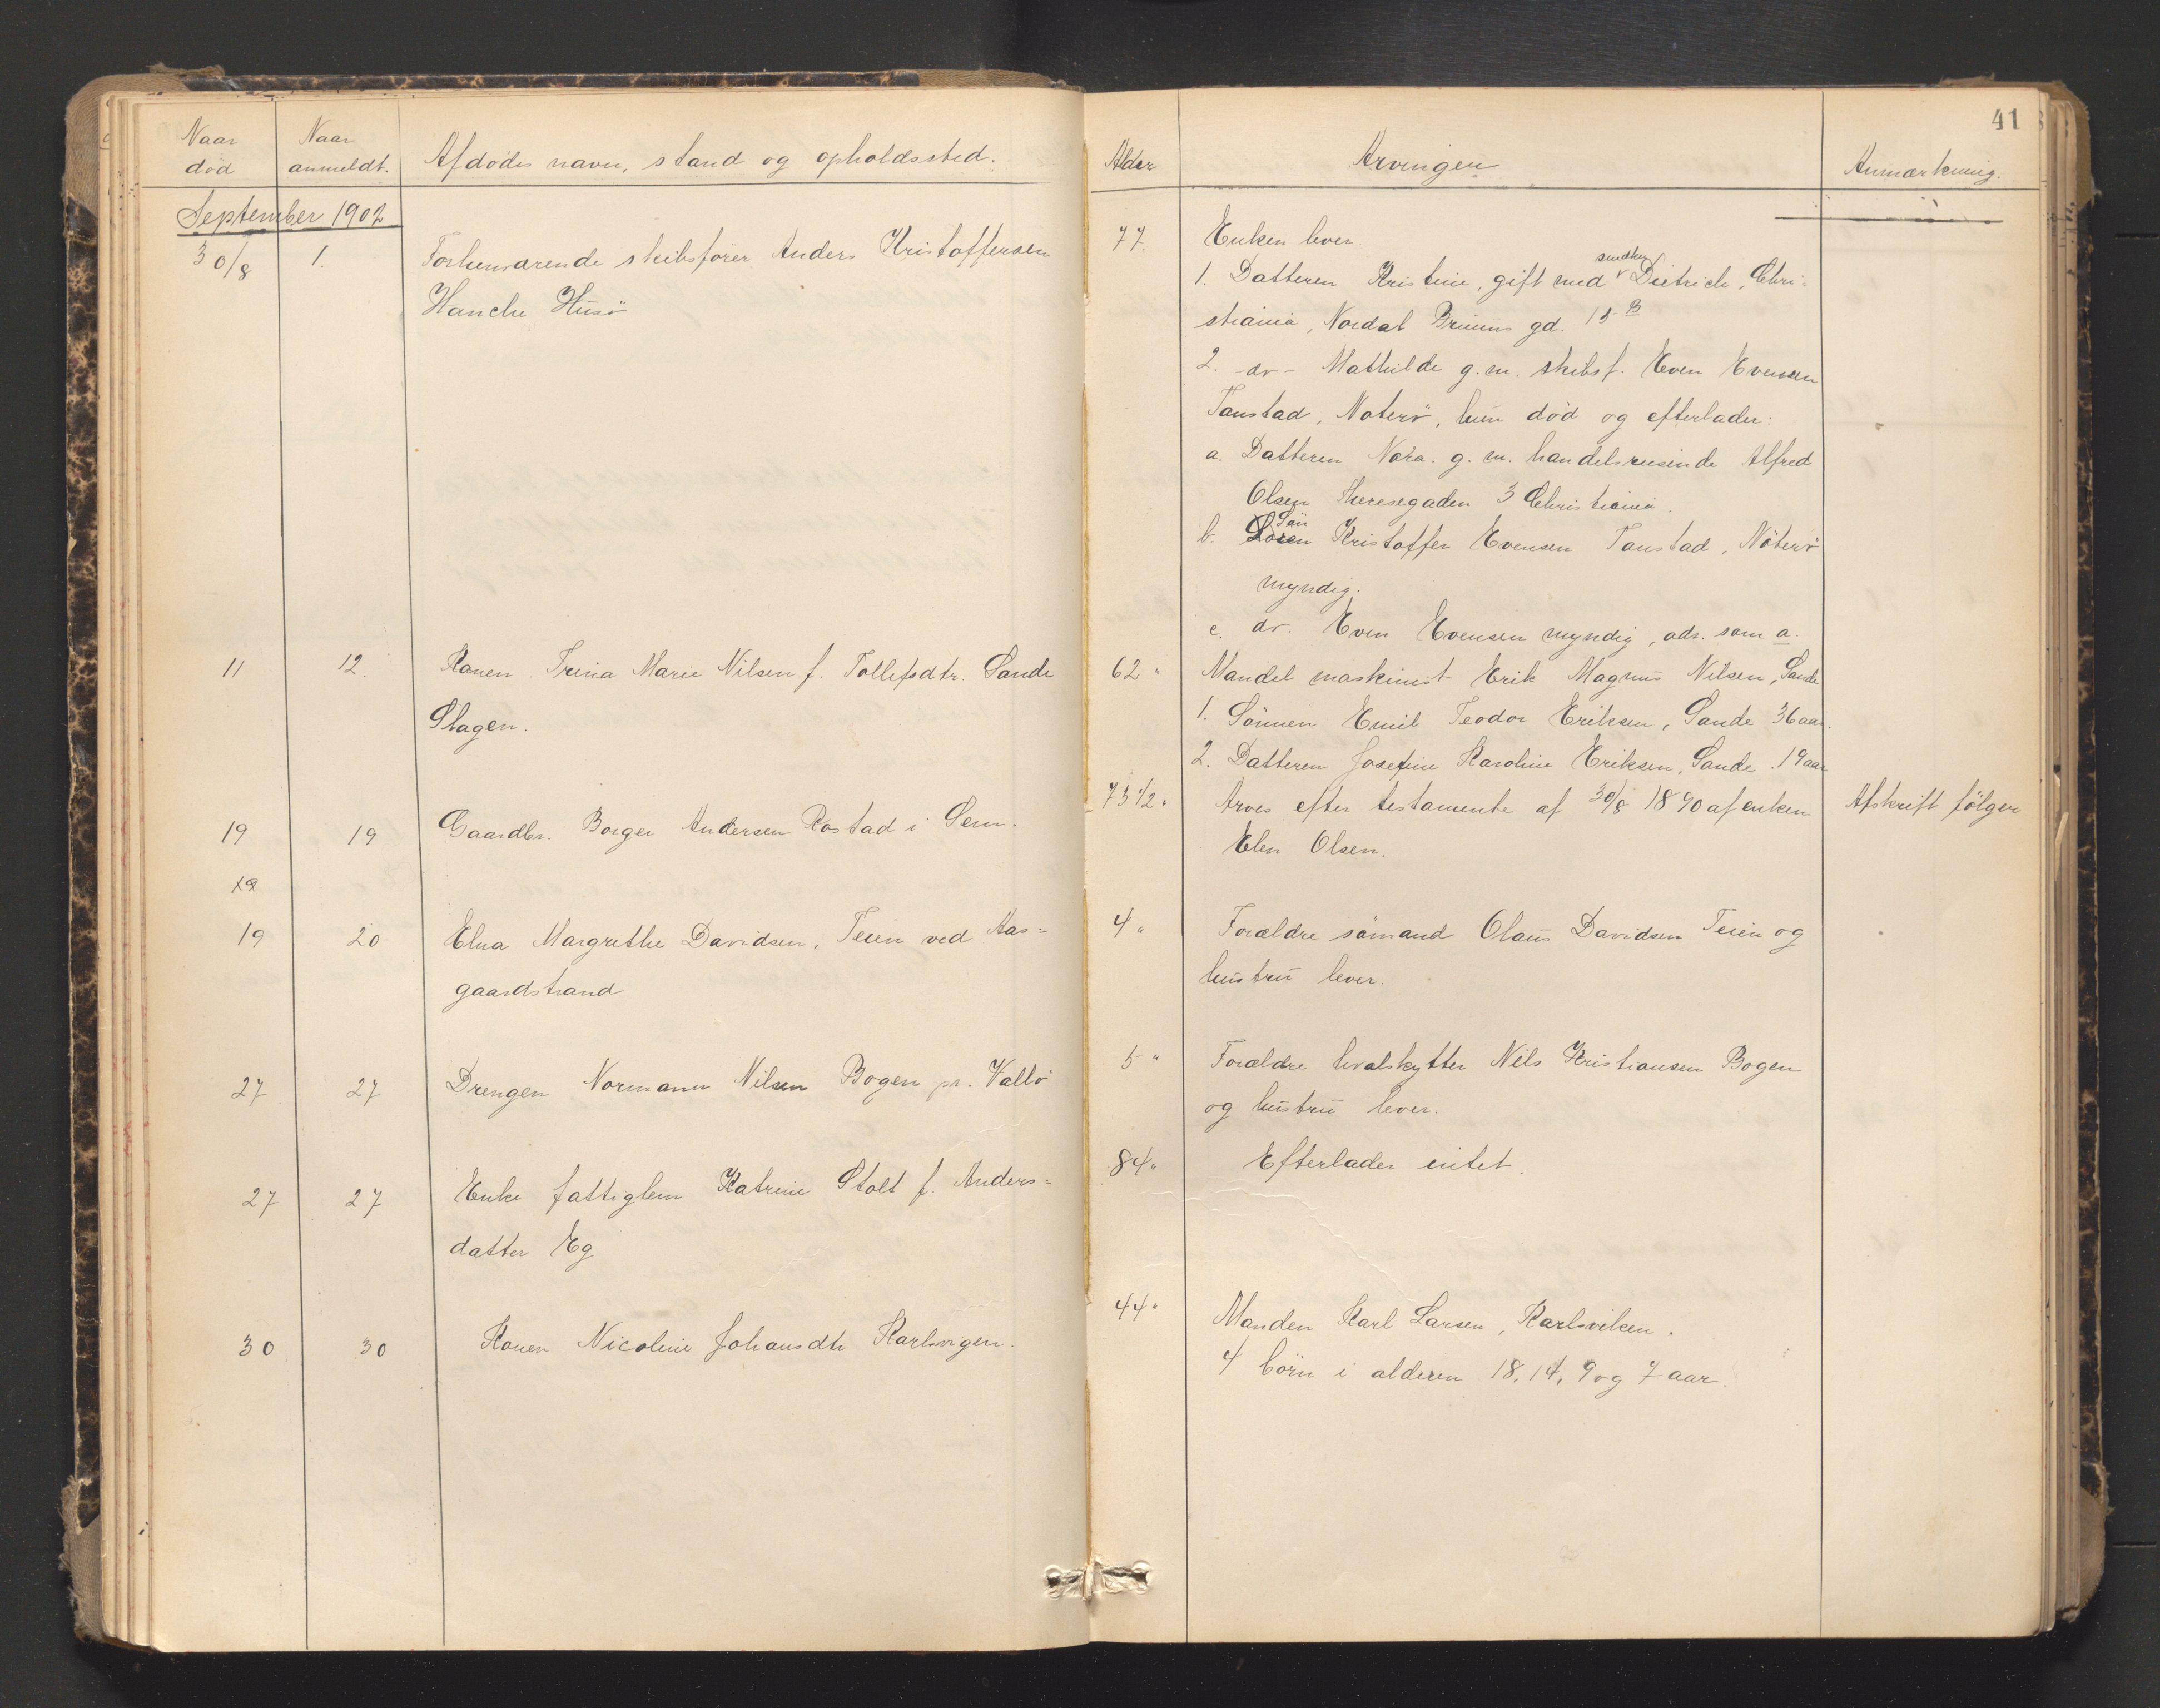 41
Naar død
Naar anmeldt.
Afdødes navn, stand og opholdssted.
Alder
Arvinger
Anmærkning.
September 1902
30/8 1. Forhenværende skibsfører Anders Kristoffersen
Hanche Husö
77. Enken lever.
1. Datteren Kristine, gift med Dietrich, Chri-
stiania, Nordal Bruuns gd. 15 B
2. - dr - Mathilde g. m. skibsf. Even Evensen
Tanstad, Noterö, hun död og efterlader:
a. Datteren Nora. g. m. handelsreisende Alfred
Olsen Theresegaden 3 Christiania.
Sön
b. Kristoffer Evensen Tanstad, Nöterö
myndig.
c. dr. Even Evensen myndig, ads. som a.
11 12. Konen Trina Marie Nilsen f. Tollefsdtr. Sande
Slagen.
62 " Mandel maskinist Erik Magnus Nilsen, Sande
1. Sönnen Emil Teodor Eriksen, Sande 36 aar.
2. Datteren Josefine Karoline Eriksen, Sande. 19 aar
19 19 Gaardbr. Borger Andersen Rostad i Sem.
73 1/2 " Arves efter testamente af 30/8 1890 af enken
Elen Olsen.
Afskrift fölger
19
19 20 Elna Margrethe Davidsen, Teien ved Aas=
gaardstrand
4 " Forældre sömand Olaus Davidsen Teien og
hustru lever.
27 27 Drengen Normann Nilsen Bogen pr. Vallö
5 " Forældre hvalskytter Nils Kristiansen Bogen
og hustru lever.
27 27 Enke fattiglem Katrine Stolt f. Anders=
datter Eg
84 " Efterlader intet.
30 30 Konen Nicoline Johansdtr Karlsvigen.
44 " Manden Karl Larsen, Karlsviken.
4 börn i alderen 18, 14, 9 og 7 aar.